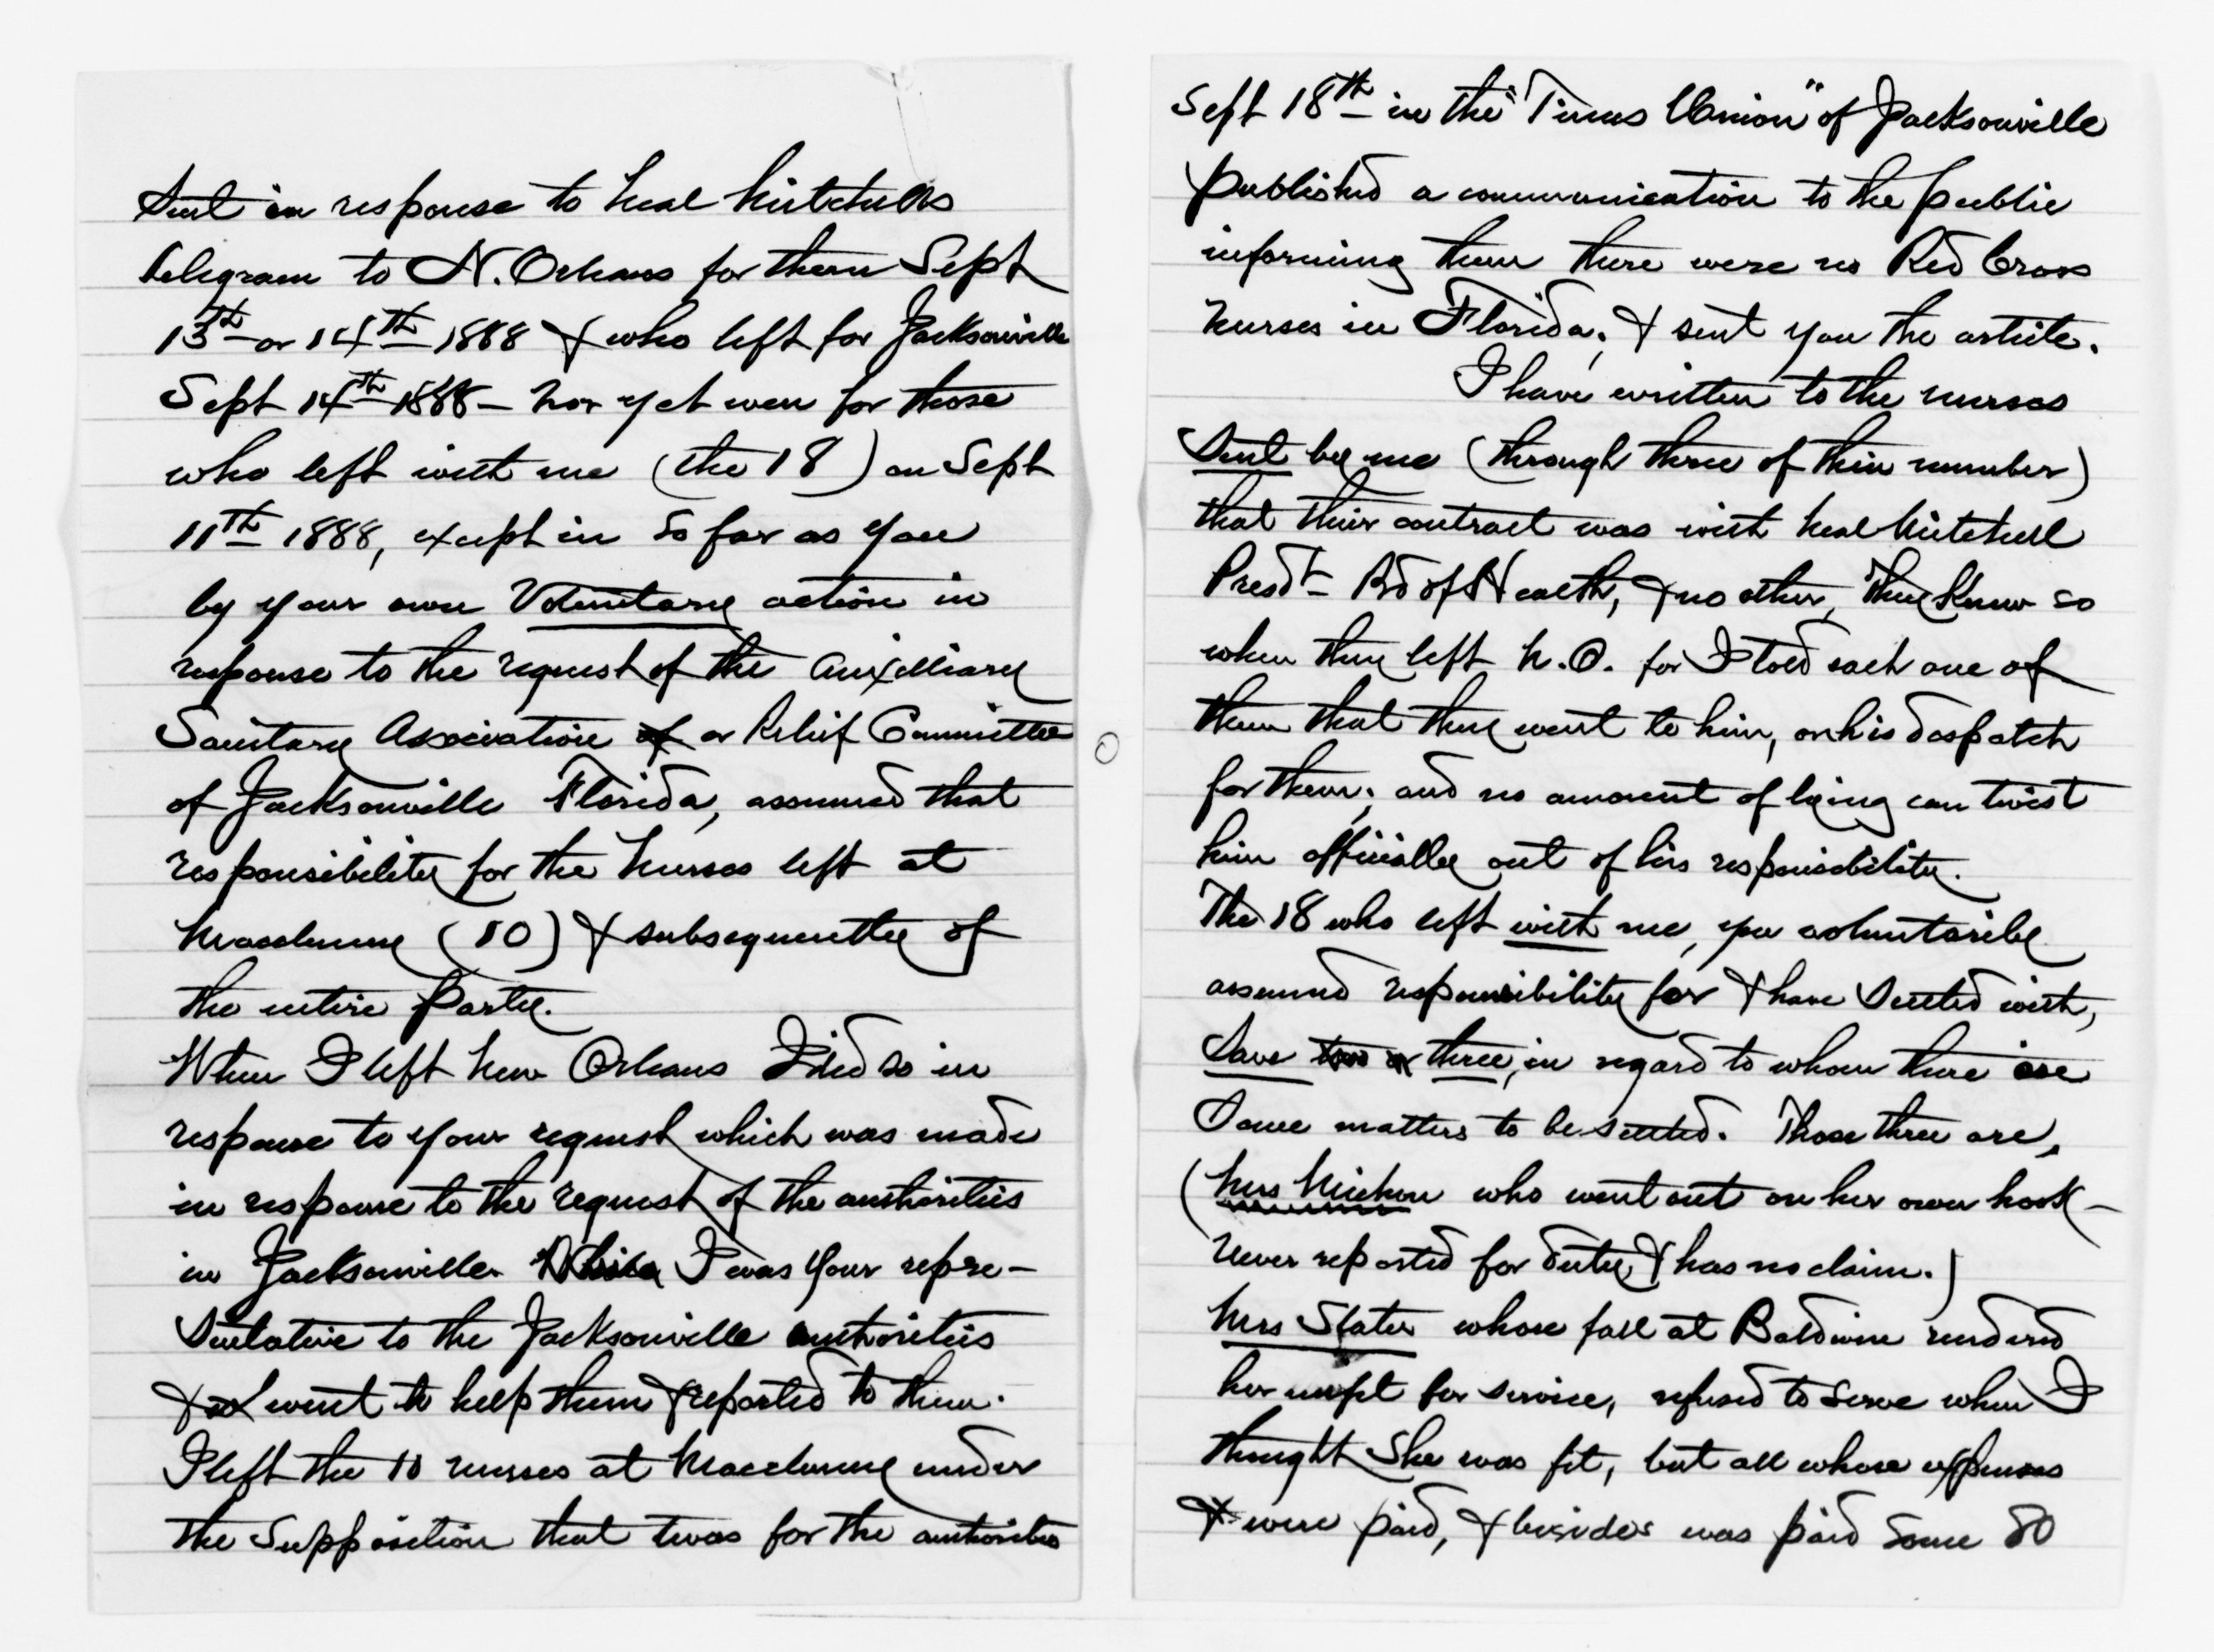 sent in response to Neal Mitchells
telegram to N. Orleans for them Sept
13th or 14th 1888 & who left for Jacksonville
Sept 14th 1888 — nor yet were for those
who left with me (the 18) on Sept
11th 1888, except in so far as you
by your own Voluntary action in
response to the request of the Auxilliary
Sanitary Association of or Relief Committee
of Jacksonville Florida, assumed that
responsibility for the nurses left at
Macclenny (10) & subsequently of
the entire party.
When I left New Orleans I did so in
response to your request which was made
in response to the request of the authorities
in Jacksonville. While I was your repre-
sentative to the Jacksonville authorities
& went to help them & reported to them.
I left the 10 nurses at Macclenny under
the Supposition that twas for the authorities
Sept 18th in the "Times Union" of Jacksonville
published a communication to the public
informing them there were no Red Cross
nurses in Florida; & sent you the article.
I have written to the nurses
sent by me (through three of their number)
that their contract was with Neal Mitchell
Presdt Bd of Health, & no other, They knew so
when they left N.O. for I told each one of
them that they went to him, on his despatch
for them; and no amount of lying can twist
him officially out of his responsibility.
The 18 who left with me, you voluntarily
assumed responsibility for & have settled with,
Save two or three, in regard to whom there are
some matters to be settled. Those three are,
(Mrs who went out on her own hook —
never reported for duty, & has no claim.)
Mrs Slater whose fall at Baldwin rendered
her unfit for service, refused to serve when I
thought she was fit, but all whose expenses
were paid, & besides was paid some 80